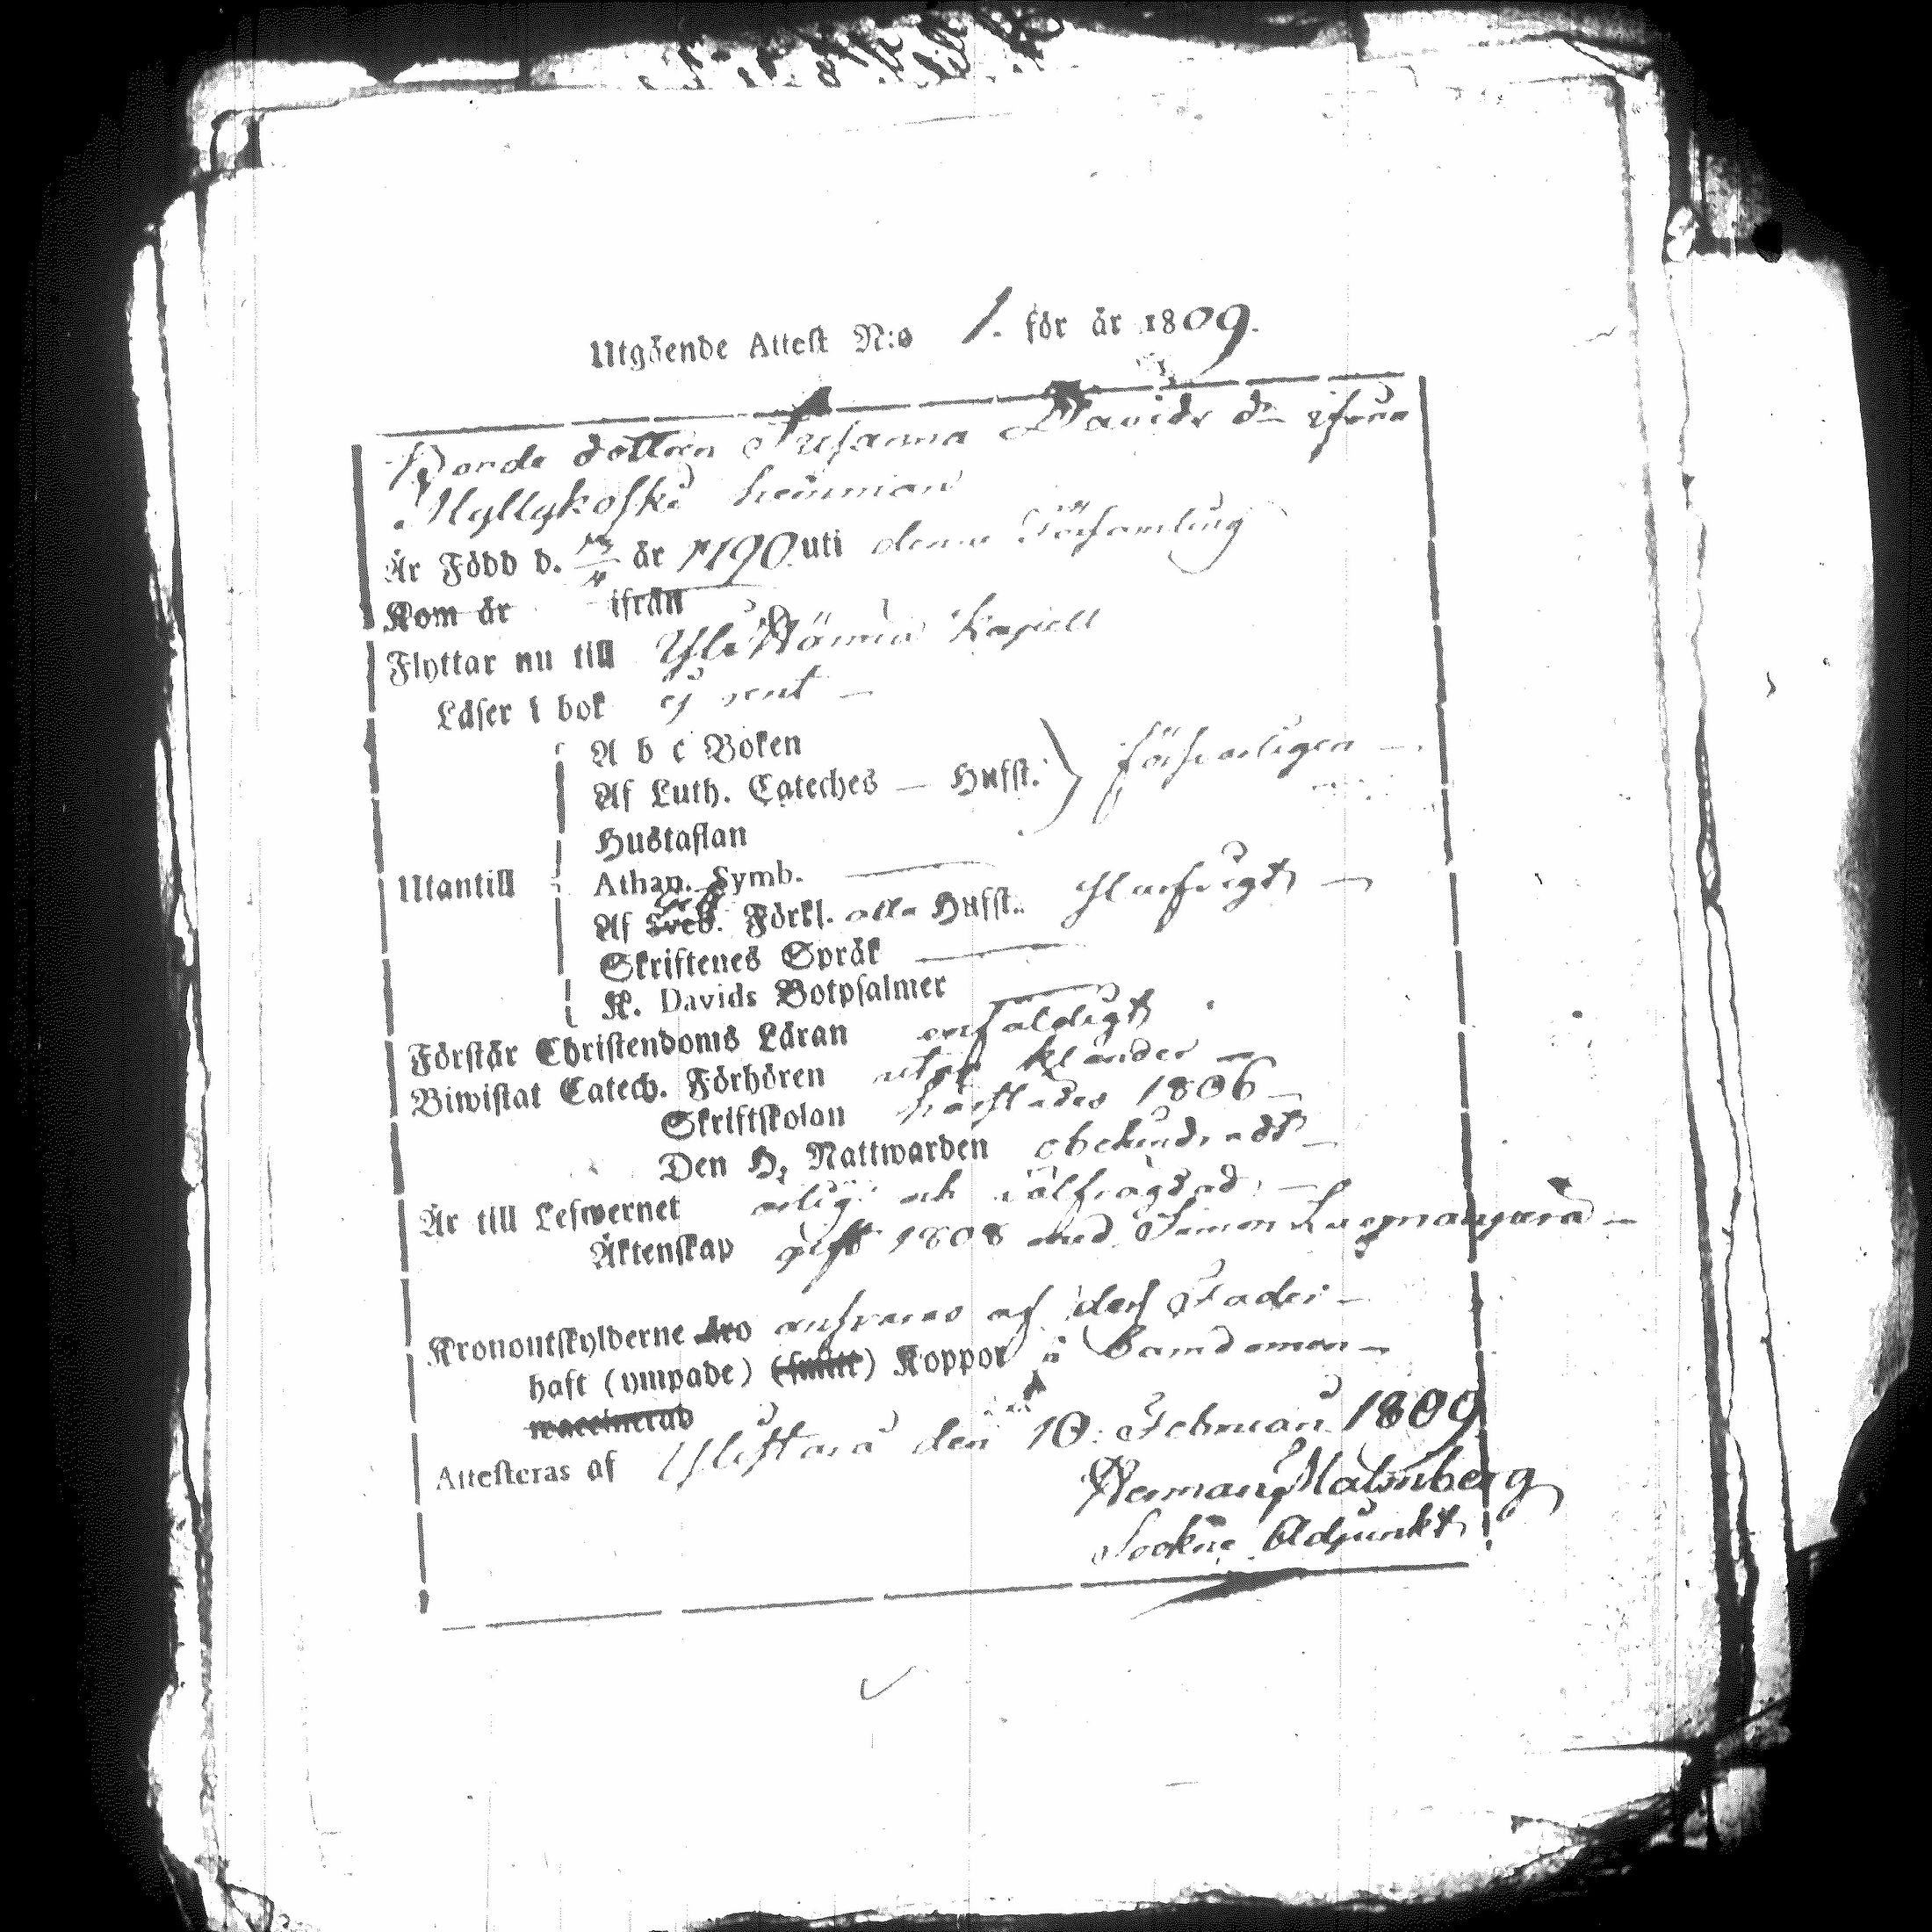 Utgående Attest N:o 1. för år 1809.
Bonde dottren Susanna Davids dr ifrån
Myllykoski hemman
Är Född d. år 1790 uti denna Församling
Kom år ifrån
Flyttar nu till Kapell
Läser i bok ej rent —
A b c Boken
Af Luth. Cateches — Hufst. försvarligen —
Hustaflan
Utantill Athan. Symb. —
Af Sveb. Förkl. alla Hufst. slarfvigt —
Skriftenes Språk —
K. Davids Botpsalmer —
Förstår Christendoms Läran enfaldigt
Biwistat Catech. Förhören utan klander —
Skriftskolan 1806 —
Den H. Nattwarden obehindradt —
Är till Lefwernet ärlig och välfrägdad —
Äktenskap gift 1808 med Simon
Kronoutskylderne äro ansvaras af dess Fader —
haft (ympade) Koppor i Barndomen —
waccinerad
Attesteras af Ylistaro den 10. Februari 1809
Herman Malmberg
Sockne Adjunkt